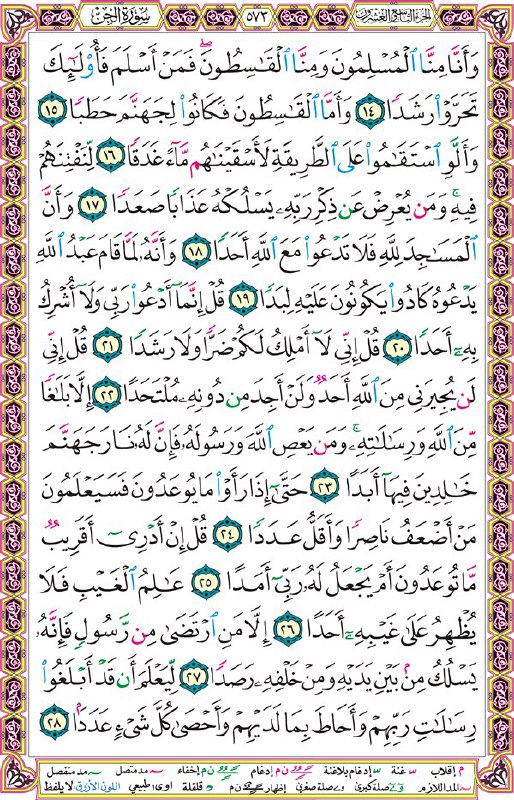 الجزء التاسع والعشرون ٥٧٣ سورة الجن
وَأَنَّا مِنَّا ٱلْمُسْلِمُونَ وَمِنَّا ٱلْقَٰسِطُونَۖ فَمَنْ أَسْلَمَ فَأُو۟لَٰٓئِكَ
تَحَرَّوْا۟ رَشَدًا ١٤ وَأَمَّا ٱلْقَٰسِطُونَ فَكَانُوا۟ لِجَهَنَّمَ حَطَبًا ١٥
وَأَلَّوِ ٱسْتَقَٰمُوا۟ عَلَى ٱلطَّرِيقَةِ لَأَسْقَيْنَٰهُم مَّآءً غَدَقًا ١٦ لِّنَفْتِنَهُمْ
فِيهِۚ وَمَن يُعْرِضْ عَن ذِكْرِ رَبِّهِۦ يَسْلُكْهُ عَذَابًا صَعَدًا ١٧ وَأَنَّ
ٱلْمَسَٰجِدَ لِلَّهِ فَلَا تَدْعُوا۟ مَعَ ٱللَّهِ أَحَدًا ١٨ وَأَنَّهُۥ لَمَّا قَامَ عَبْدُ ٱللَّهِ
يَدْعُوهُ كَادُوا۟ يَكُونُونَ عَلَيْهِ لِبَدًا ١٩ قُلْ إِنَّمَآ أَدْعُوا۟ رَبِّى وَلَآ أُشْرِكُ
بِهِۦٓ أَحَدًا ٢٠ قُلْ إِنِّى لَآ أَمْلِكُ لَكُمْ ضَرًّا وَلَا رَشَدًا ٢١ قُلْ إِنِّى
لَن يُجِيرَنِى مِنَ ٱللَّهِ أَحَدٌ وَلَنْ أَجِدَ مِن دُونِهِۦ مُلْتَحَدًا ٢٢ إِلَّا بَلَٰغًا
مِّنَ ٱللَّهِ وَرِسَٰلَٰتِهِۦۚ وَمَن يَعْصِ ٱللَّهَ وَرَسُولَهُۥ فَإِنَّ لَهُۥ نَارَ جَهَنَّمَ
خَٰلِدِينَ فِيهَآ أَبَدًا ٢٣ حَتَّىٰٓ إِذَا رَأَوْا۟ مَا يُوعَدُونَ فَسَيَعْلَمُونَ
مَنْ أَضْعَفُ نَاصِرًا وَأَقَلُّ عَدَدًا ٢٤ قُلْ إِنْ أَدْرِىٓ أَقَرِيبٌ
مَّا تُوعَدُونَ أَمْ يَجْعَلُ لَهُۥ رَبِّىٓ أَمَدًا ٢٥ عَٰلِمُ ٱلْغَيْبِ فَلَا
يُظْهِرُ عَلَىٰ غَيْبِهِۦٓ أَحَدًا ٢٦ إِلَّا مَنِ ٱرْتَضَىٰ مِن رَّسُولٍ فَإِنَّهُۥ
يَسْلُكُ مِنۢ بَيْنِ يَدَيْهِ وَمِنْ خَلْفِهِۦ رَصَدًا ٢٧ لِّيَعْلَمَ أَن قَدْ أَبْلَغُوا۟
رِسَٰلَٰتِ رَبِّهِمْ وَأَحَاطَ بِمَا لَدَيْهِمْ وَأَحْصَىٰ كُلَّ شَىْءٍ عَدَدًۢا ٢٨
م إقلاب غنة إدغام بلاغنة ن م إدغام ن م إخفاء مد متصل مد منفصل
المد اللازم صلة كبرى صلة صغرى إظهار ن م قلقلة اوى: طبيعي اللون الأزرق لا يلفظ